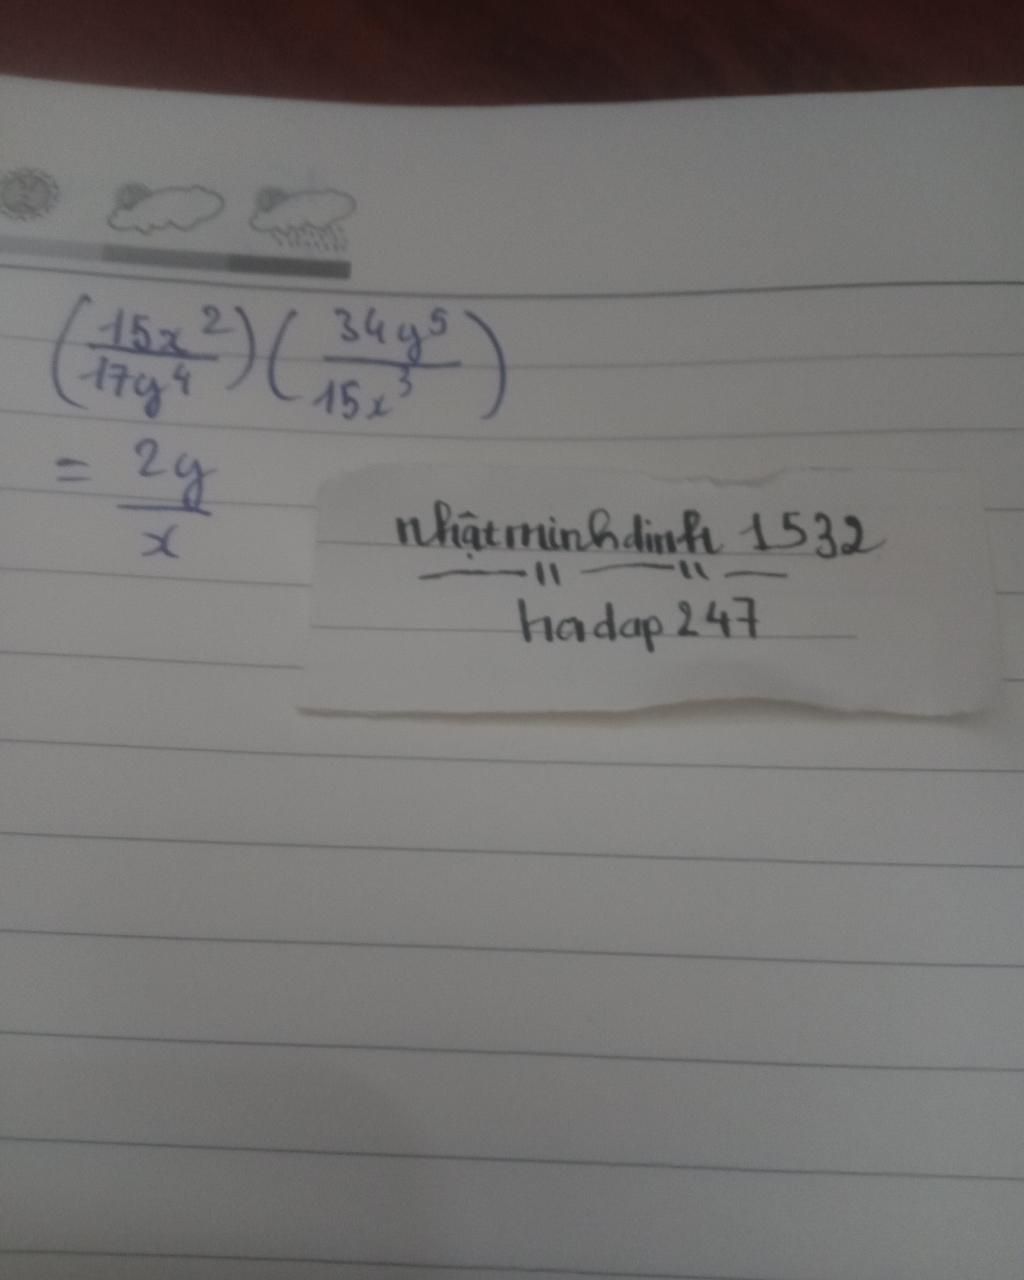 (15x²/17y⁴)(34y⁵/15x³)
= 2y/x
nhậtminhdinh 1532
hoidap247